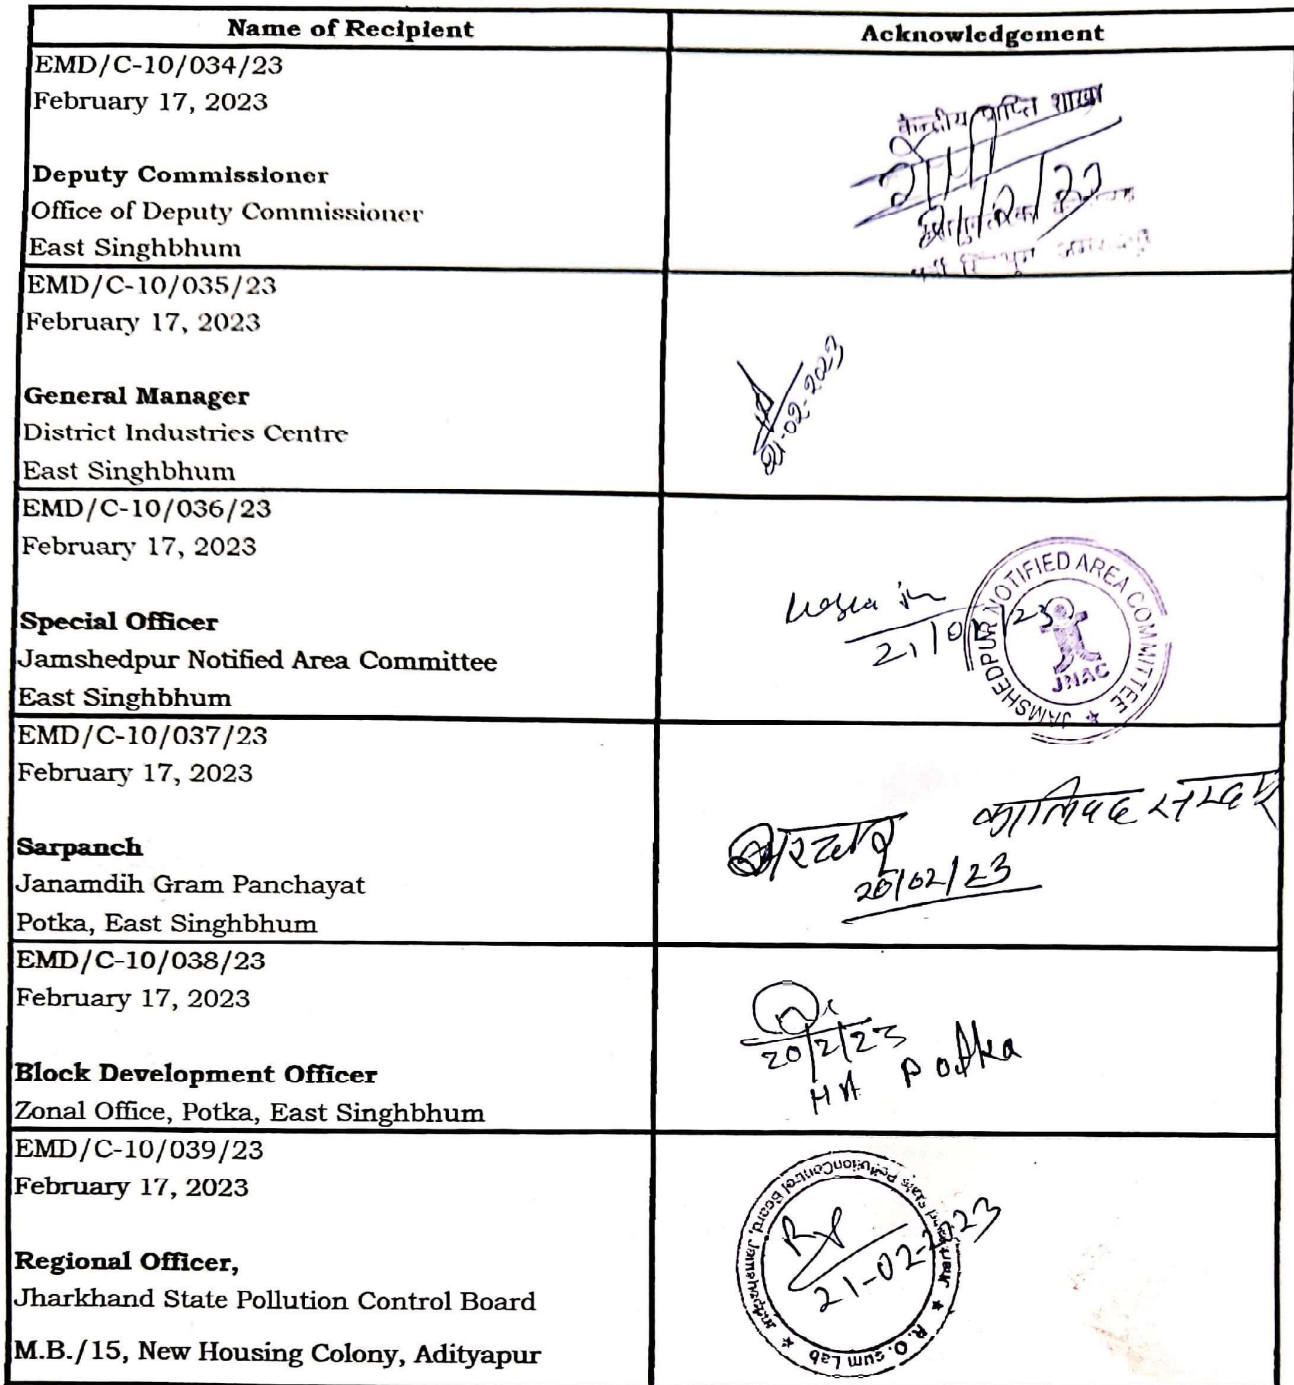 Name of Recipient
Acknowledgement
EMD/C-10/034/23
February 17, 2023
Deputy Commissioner
Office of Deputy Commissioner
East Singhbhum
केन्द्रीय प्राप्ति शाखा
21/2/23
EMD/C-10/035/23
February 17, 2023
General Manager
District Industries Centre
East Singhbhum
21-02-2023
EMD/C-10/036/23
February 17, 2023
Special Officer
Jamshedpur Notified Area Committee
East Singhbhum
21/02/23
JAMSHEDPUR NOTIFIED AREA COMMITTEE
JNAC
EMD/C-10/037/23
February 17, 2023
Sarpanch
Janamdih Gram Panchayat
Potka, East Singhbhum
20/02/23
EMD/C-10/038/23
February 17, 2023
Block Development Officer
Zonal Office, Potka, East Singhbhum
20/2/23
Potka
EMD/C-10/039/23
February 17, 2023
Regional Officer,
Jharkhand State Pollution Control Board
M.B./15, New Housing Colony, Adityapur
21-02-2023
Jharkhand State Pollution Control Board, Jamshedpur
R.O. cum Lab